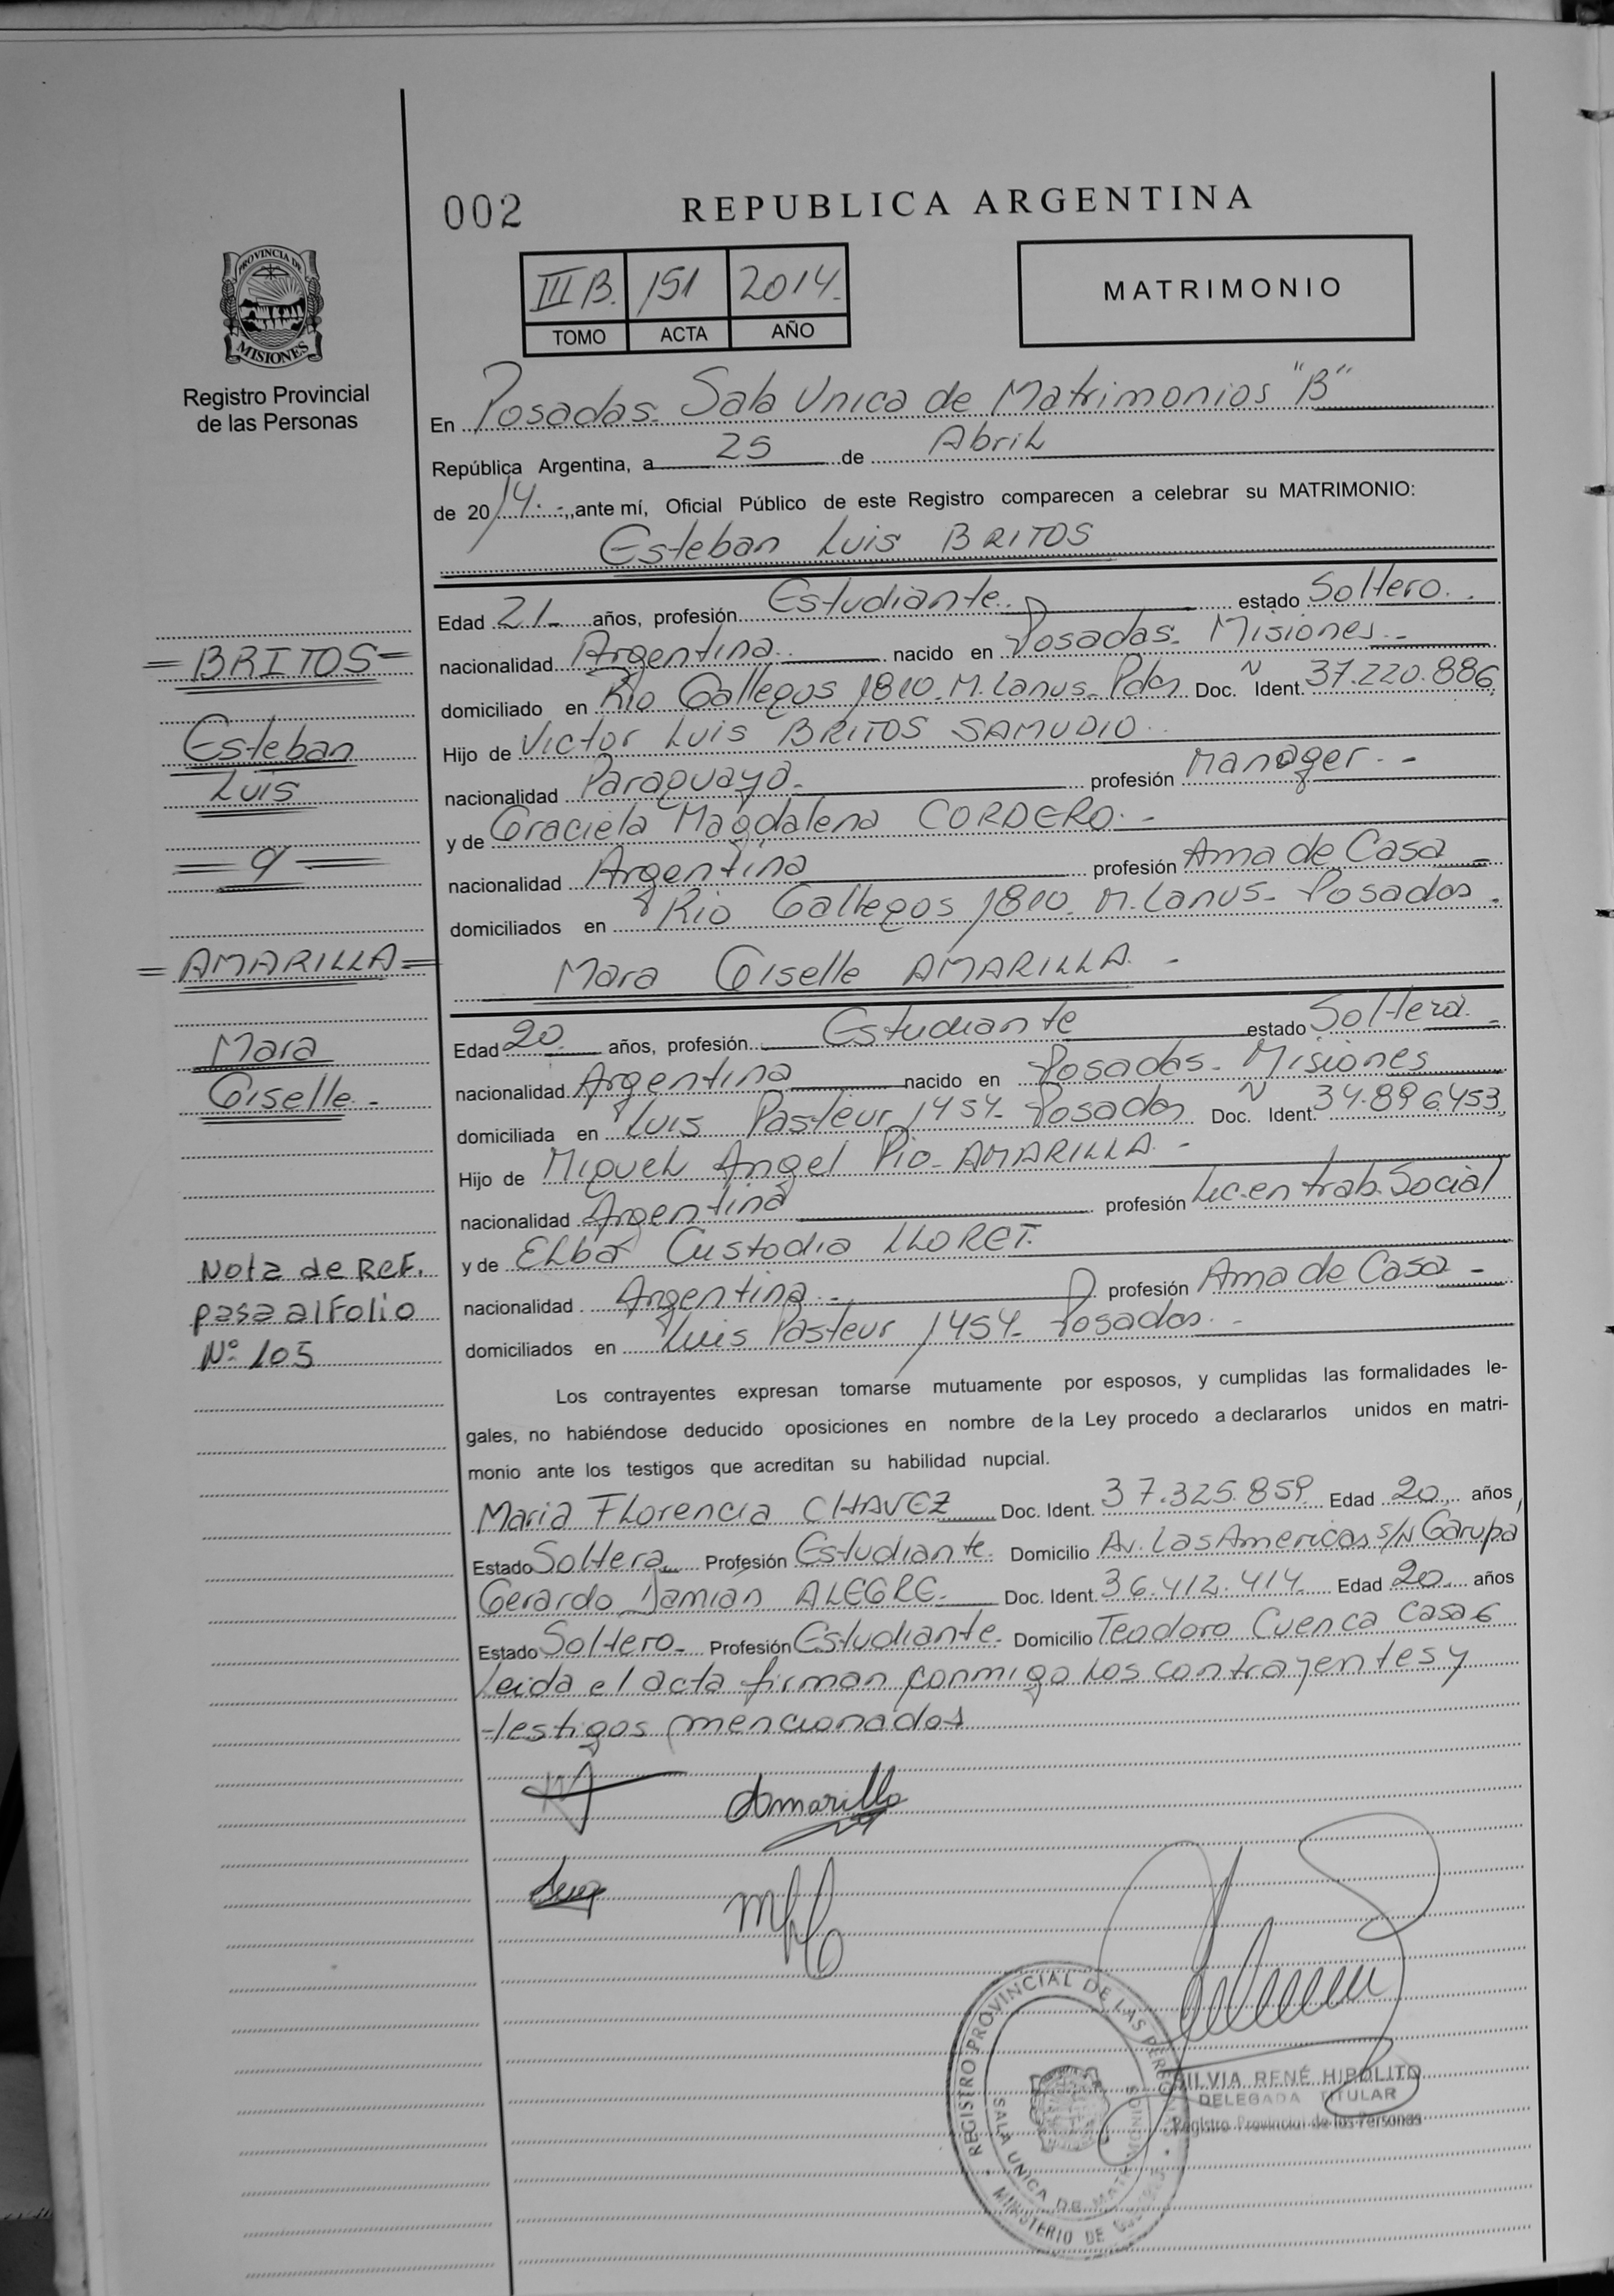 002
REPUBLICA ARGENTINA
III B. 151 2014.
TOMO ACTA AÑO
MATRIMONIO
PROVINCIA DE
MISIONES
Registro Provincial
de las Personas
En Posadas. Sala Unica de Matrimonios "B"
República Argentina, a 25 de Abril
de 2014.-, ante mí, Oficial Público de este Registro comparecen a celebrar su MATRIMONIO:
Esteban Luis BRITOS
Edad 21 años, profesión Estudiante. estado Soltero.
nacionalidad Argentina nacido en Posadas. Misiones.-
domiciliado en Rio Gallegos 1810. M. Lanus. Pdas Doc. N Ident. 37.220.886
Hijo de Victor Luis BRITOS SAMUDIO.
nacionalidad Paraguaya profesión Manager.-
y de Graciela Magdalena CORDERO.-
nacionalidad Argentina profesión Ama de Casa
domiciliados en Rio Gallegos 1810. M. Lanus. Posadas.
Mara Giselle AMARILLA.-
Edad 20. años, profesión Estudiante estado Soltera.
nacionalidad Argentina nacido en Posadas. Misiones
domiciliada en Luis Pasteur 1454. Posadas Doc. N Ident. 34.896453
Hijo de Miguel Angel Pio AMARILLA.-
nacionalidad Argentina profesión Lic. en trab. Social
y de Elba Custodia LLORET.
nacionalidad Argentina.- profesión Ama de Casa -
domiciliados en Luis Pasteur 1454. Posadas.-
=BRITOS=
Esteban
Luis
AMARILLA=
Mara
Giselle.-
Nota de Ref.
pasa al Folio
Nº 105
Los contrayentes expresan tomarse mutuamente por esposos, y cumplidas las formalidades le-
gales, no habiéndose deducido oposiciones en nombre de la Ley procedo a declararlos unidos en matri-
monio ante los testigos que acreditan su habilidad nupcial.
Maria Florencia CHAVEZ Doc. Ident. 37.325.859 Edad 20 años
Estado Soltera Profesión Estudiante. Domicilio Av. Las Americas S/N Garupa
Gerardo Damian ALEGRE. Doc. Ident. 36.412.414. Edad 20 años
Estado Soltero Profesión Estudiante. Domicilio Teodoro Cuenca Casa 6
Leida el acta firman conmigo los contrayentes y
testigos mencionados
Amarilla
REGISTRO PROVINCIAL DE LAS PERSONAS
SALA UNICA DE MATRIMONIOS
MINISTERIO DE
SILVIA RENÉ HIPOLITO
DELEGADA TITULAR
Registro Provincial de las Personas